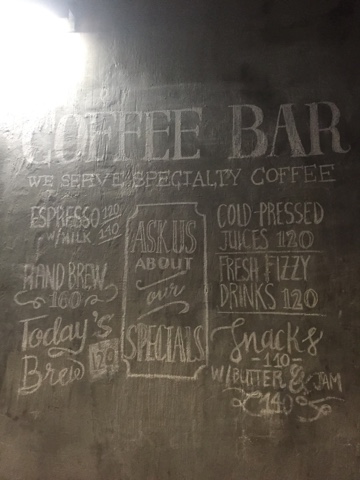 COFFEE BAR
WE SERVE SPECIALTY COFFEE
ESPRESSO 120
W/MILK 140
HAND BREW
160
Today's
Brew 70
ASK US
ABOUT
our
SPECIALS
COLD-PRESSED
JUICES 120
FRESH FIZZY
DRINKS 120
Snacks
-110-
W/BUTTER & JAM
140